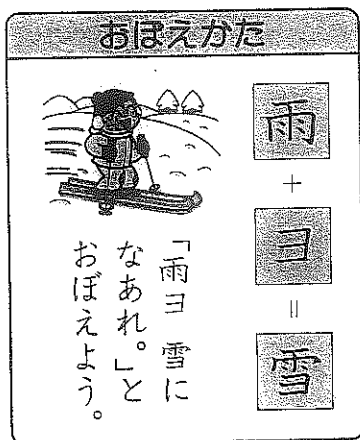 おぼえかた
雨+ヨ=雪
「雨ヨ 雪に
なあれ。」と
おぼえよう。